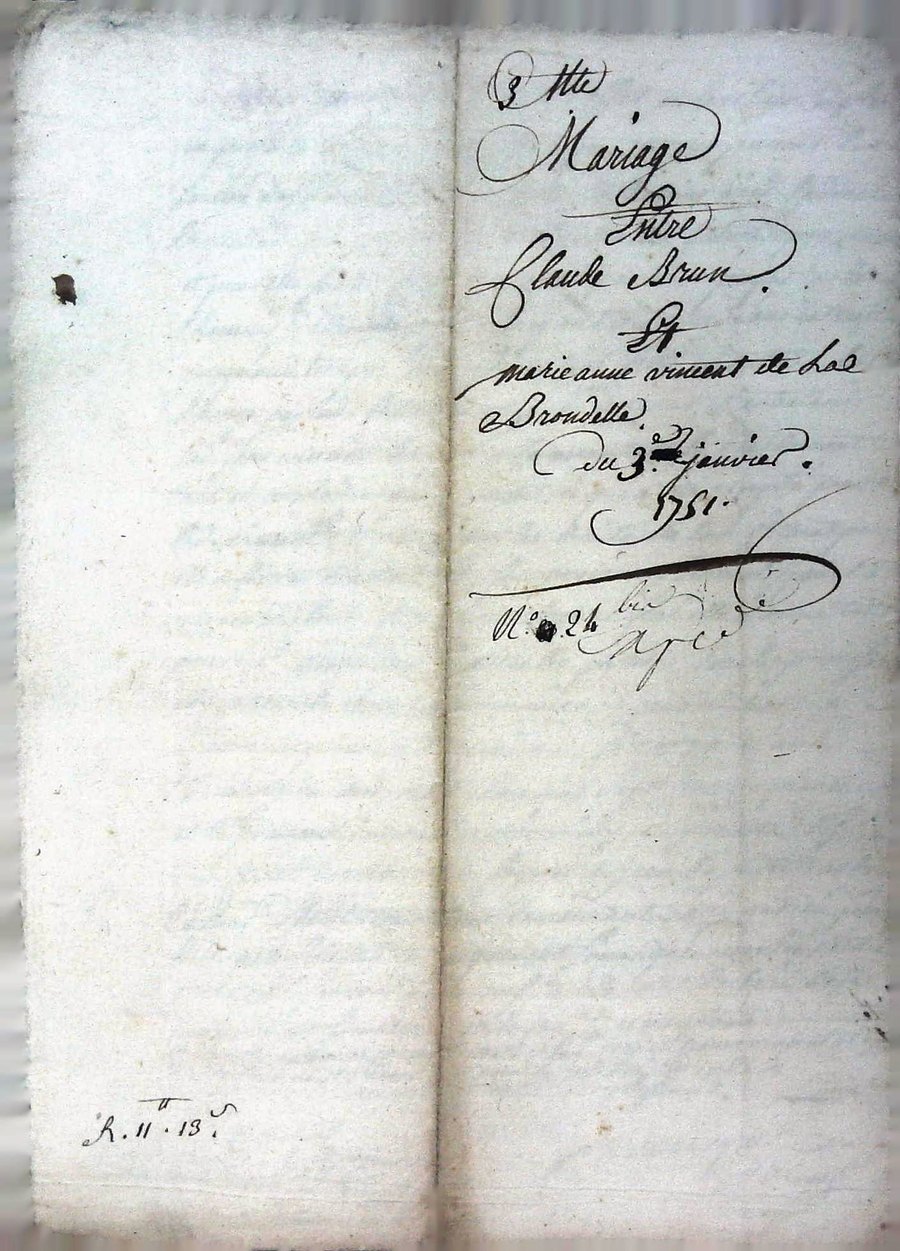 3
Mariage
Entre
Claude Brun.
Et
marieanne vincent de Lal
Brondelle.
du 3.e janvier.
1751.
N.o 24 bis
R. 11 # . 13 s.